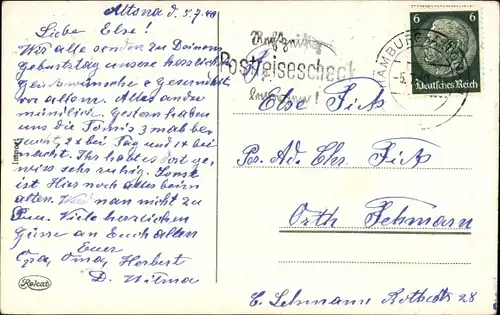 Altona d. 5.7.40
Liebe Else!
Wir alle senden zu Deinem
Geburtstag unsere herzlich
Glückwünsche & Gesundheit
vor allem. Alles andre
mündlich. Gestern haben
uns die Tomis 3 mal be
2 x bei Tag und 1 x bei
Nacht. Ihr habt es dort ge
wiss sehr ruhig. Sonst
ist Hier noch alles beim
alten. man nicht zu
Viele herzlichen
Grüsse an Euch allen
Euer
Opa, Oma, Herbert
D. Wilma
Import
Rekat
Rechtzeitig
Postreisescheck
besorgen!
HAMBURG
6 6
Deutsches Reich
Else Fick
Per. Ad. Chr. Fick
Orth Fehmarn
C. Lehmann 28